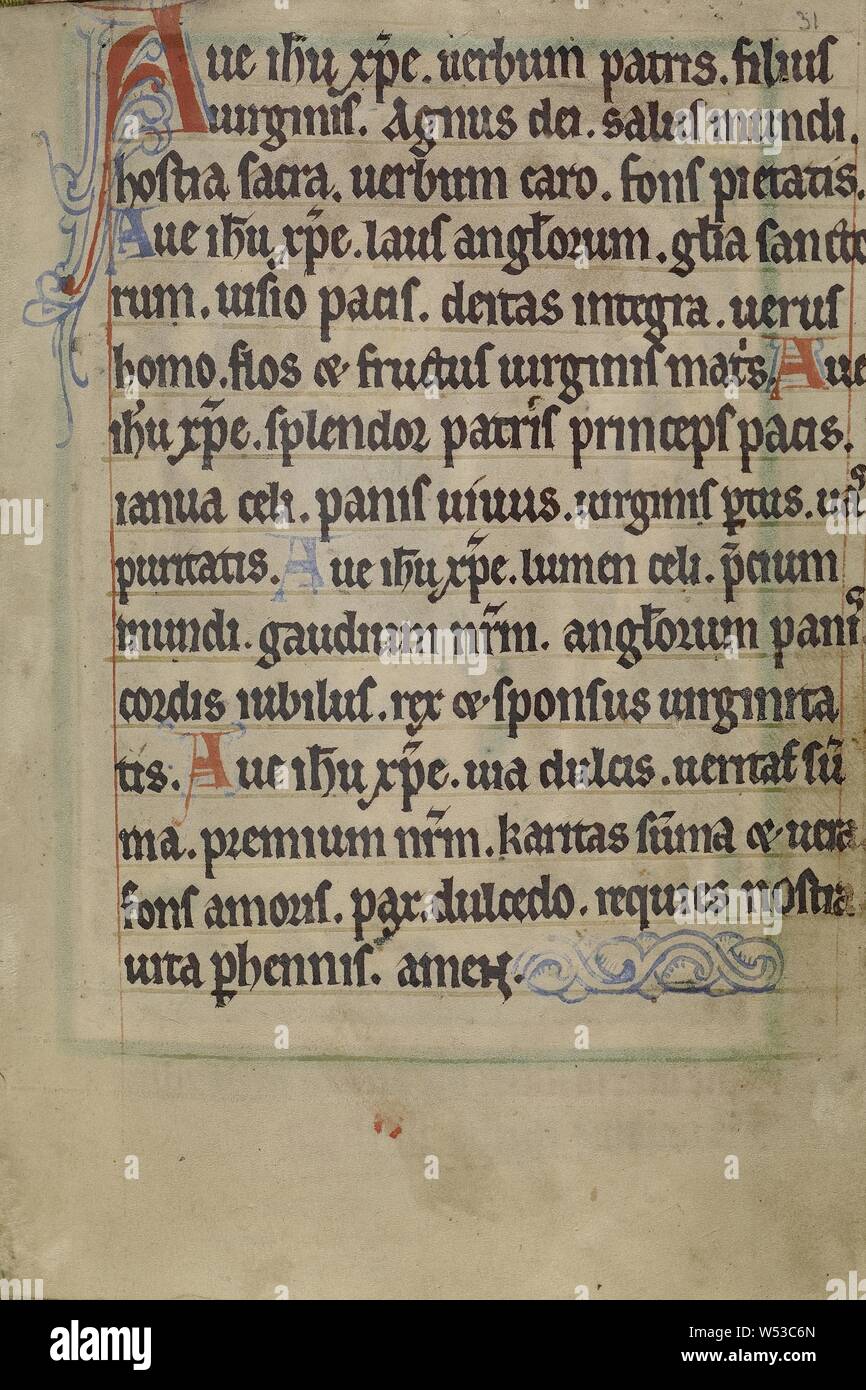 31
Aue ih̄u xp̄e. uerbum patris. filius
uirginis. Agnus dei. salus mundi.
hostia sacra. uerbum caro. fons pietatis.
Aue ih̄u xp̄e. laus angl̄orum. gl̄ia sancto
rum. uisio pacis. deitas integra. uerus
homo. flos et fructus uirginis mat̄s. Aue
ih̄u xp̄e. splendor patris princeps pacis.
ianua celi. panis uiuus. uirginis ꝑtus. uas
puritatis. Aue ih̄u xp̄e. lumen celi. p̄cium
mundi. gaudium nr̄m. angl̄orum panis
cordis iubilus. rex et sponsus uirginita
tis. Aue ih̄u xp̄e. uia dulcis. ueritas sū
ma. premium nr̄m. karitas sūma et uera
fons amoris. pax. dulcedo. requies nostra
uita ꝑhennis. amen.
alamy
Image ID: W53C6N
www.alamy.com